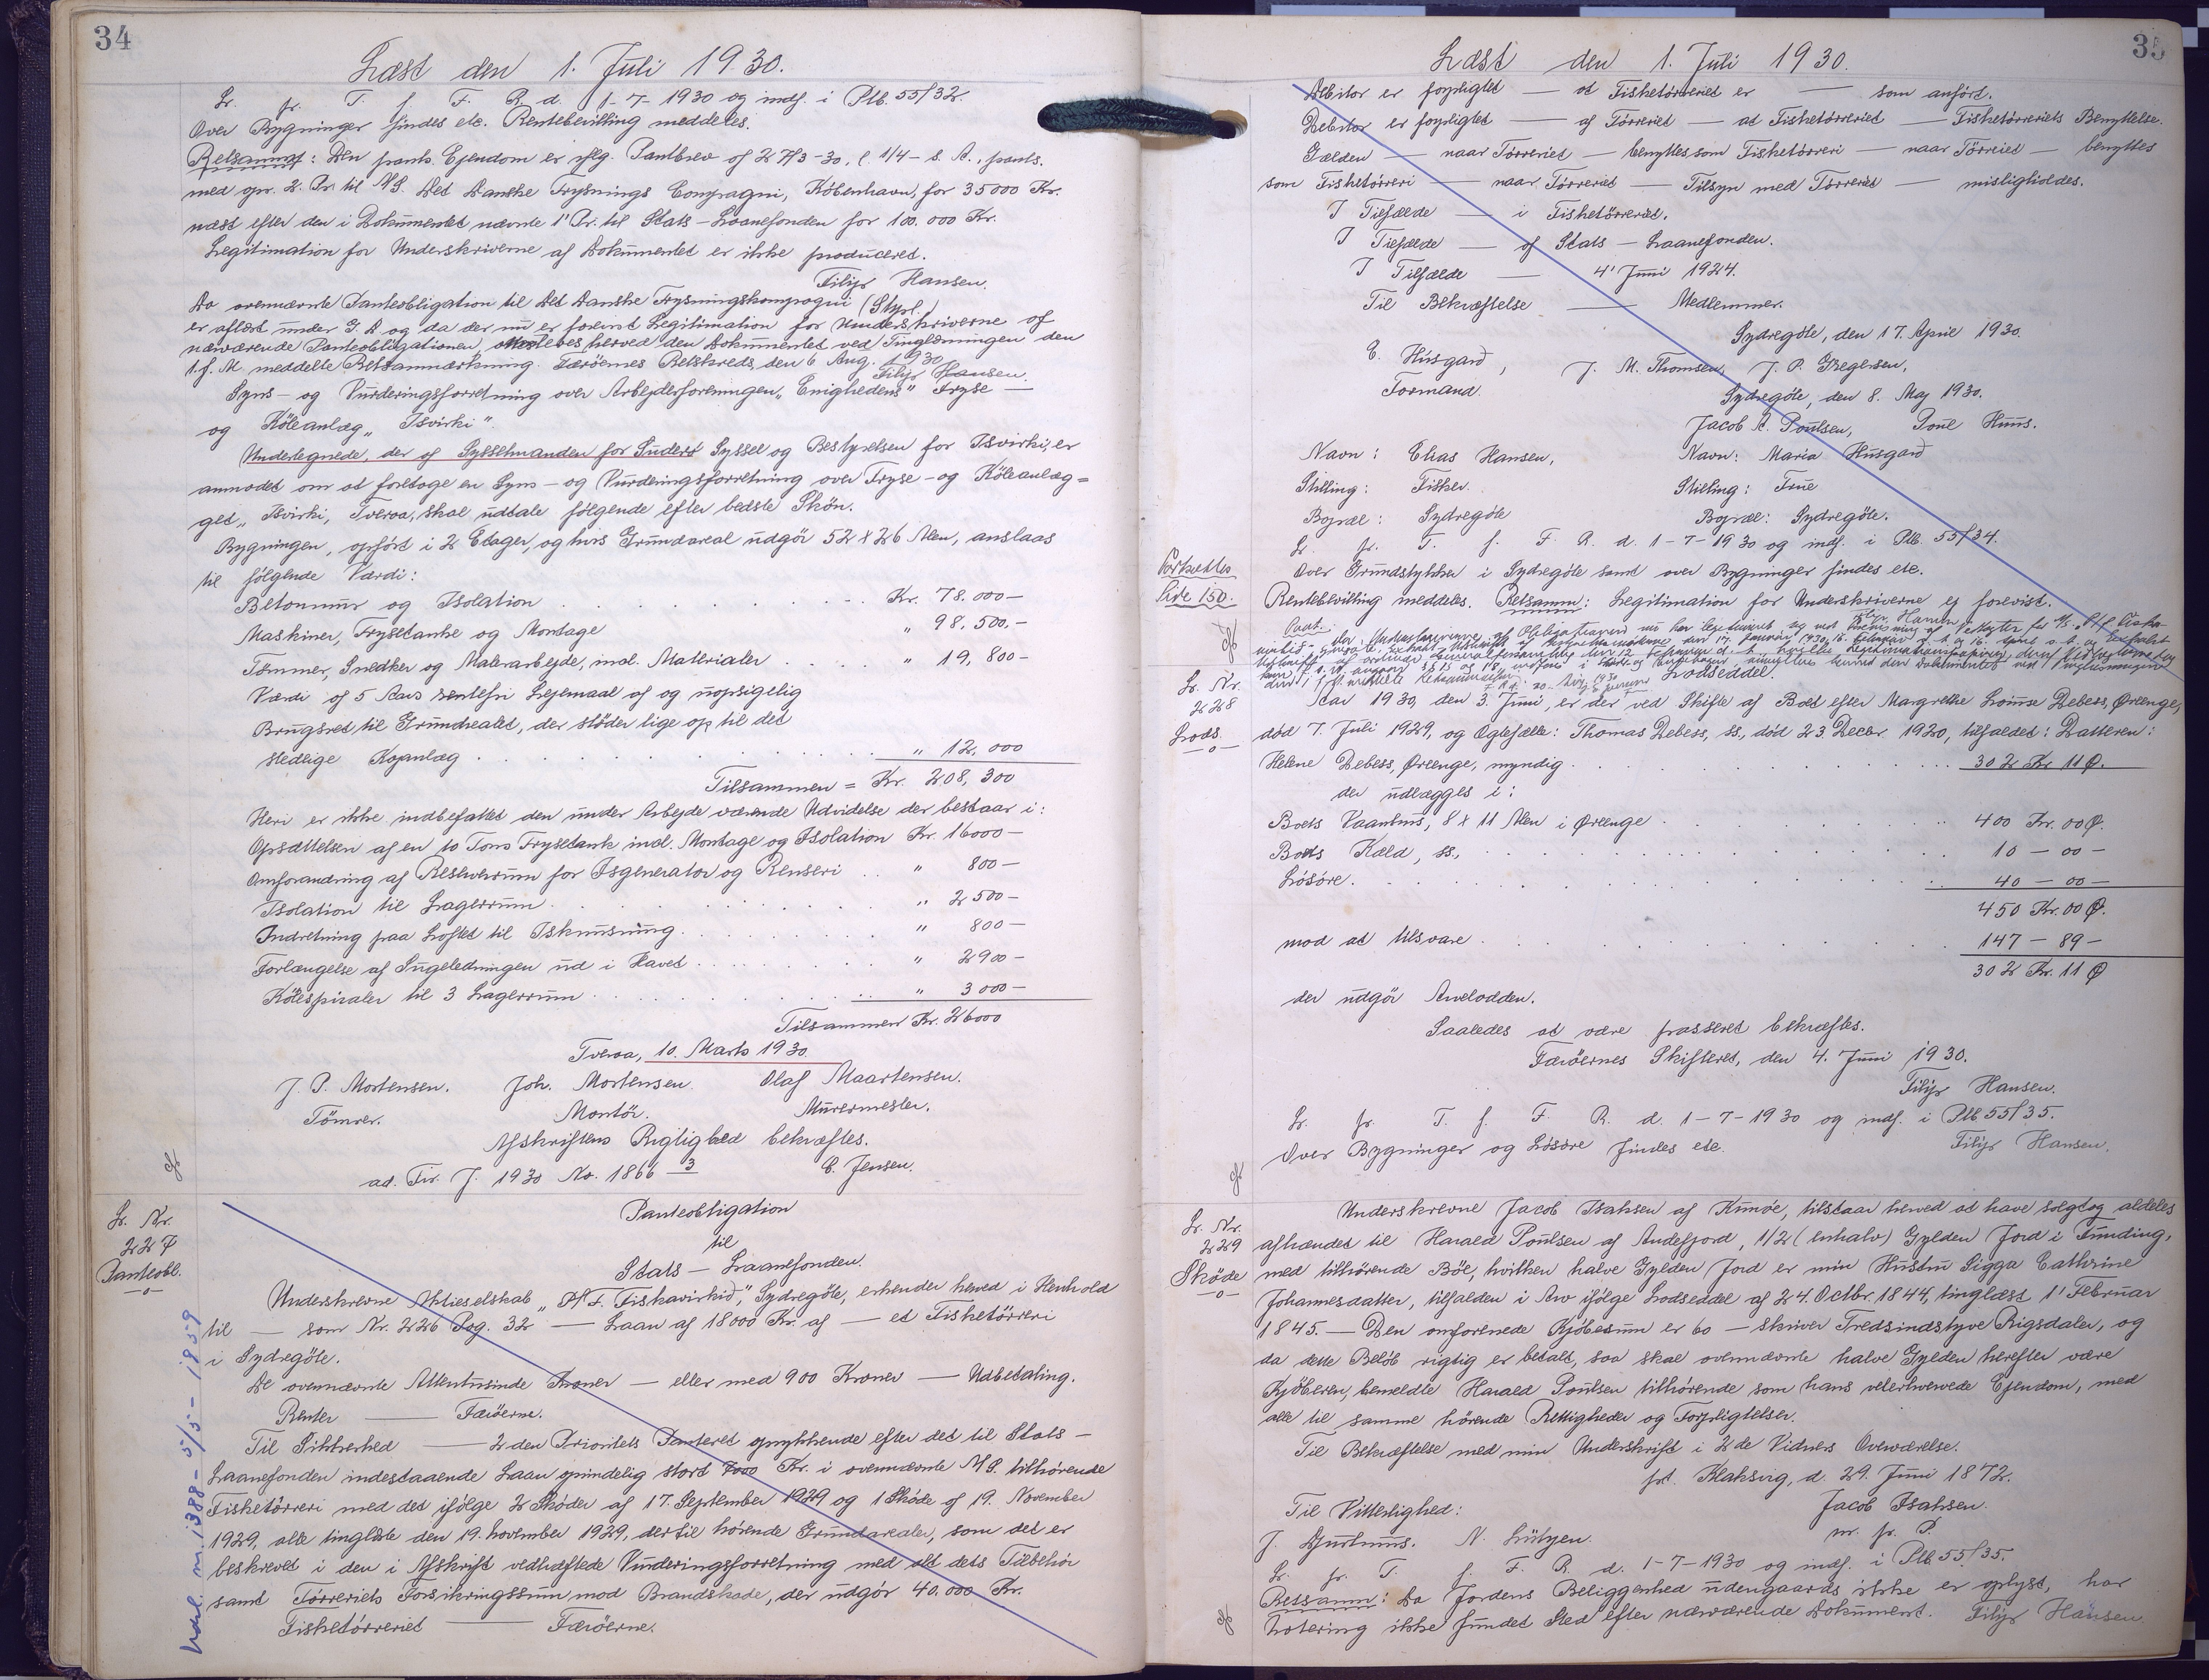 34
Læst den 1. Juli 1930.
Lr. fr. T. f. F. R. d. 1-7-1930 og indf. i Ptb. 55/32.
Over Bygninger findes etc. Rentebevilling meddeles.
Retsanm: Den pants. Ejendom er iflg. Pantbrev af 27/3-30, l. 1/4- s. A., pants.
med opr. 2. Pr. til A/S. Det Danske Frysnings Compagni, København, for 35000 Kr.
næst efter den i Dokumentet nævnte 1' Pr. til Stats-Laanefonden for 100.000 Kr.
Legitimation for Underskriverne af Dokumentet er ikke produceret.
Filip Hansen.
Da ovennævnte Panteobligation til Det Danske Frysningskompagni (Stpl.)
er aflæst under G. D. og da der nu er forevist Legitimation for Underskriverne af
nærværende Panteobligationen, herved den Dokumentet ved Tinglæsningen den
1. f. M. meddelte Retsanmærkning. Færøernes Retskreds, den 6 Aug. 1930
Filip Hansen.
Syns- og Vurderingsforretning over Arbejderforeningen "Enighedens" Fryse-
og Køleanlæg "Isvirki".
Undertegnede, der af Sysselmanden for Suderø Syssel og Bestyrelsen for Isvirki, er
anmodet om at foretage en Syns- og Vurderingsforretning over Fryse- og Køleanlæg=
get "Isvirki, Tveraa, skal udtale følgende efter bedste Skøn.
Bygningen, opført i 2 Etager, og hvis Grundareal udgør 52 x 26 Alen, anslaas
til følgende Værdi:
Betonmur og Isolation . . . . . . Kr. 78.000-
Maskiner, Frysetanke og Montage " 98.500.-
Tømmer, Snedker og Malerarbejde, incl. Materialer . . . . " 19,800-
Værdi af 5 Aars rentefri Lejemaal af og uopsigelig
Brugsret til Grundarealet, der støder lige op til det
stedlige Kajanlæg . . . . . . " 12,000
Tilsammen = Kr. 208,300
Heri er ikke indbefattet den under Arbejde værende Udvidelse der bestaar i:
Opsættelsen af en 10 Tons Frysetank incl. Montage og Isolation Kr. 16000-
Omforandring af Reserverum for Isgenerator og Renseri . . " 800-
Isolation til Lagerrum . . . . . . " 2500-
Indretning paa Loftet til Isknusning . . . . . . " 800-
Forlængelse af Sugeledningen ud i Havet . . . . . . " 2900-
Kølespiraler til 3 Lagerrum . . . . . . " 3000-
Tilsammen Kr. 26000
Tveraa, 10. Marts 1930.
J. P. Mortensen. Joh. Mortensen. Olaf Maartensen.
Tømrer. Montør. Murermester.
Afskriftens Rigtighed bekræftes.
ad. Fir. J. 1930 No. 1866 3 C. Jensen.
Lr. Nr.
227
Panteobl.
Panteobligation
til
Stats-Laanefonden.
Underskrevne Aktieselskab "P/F. Fiskavirkid", Sydregøte, erkender herved i Henhold
til — som Nr. 226 Pag. 32 — Laan af 18000 Kr. af — et Fisketørreri
i Sydregøte.
De ovennævnte Attentusinde Kroner — eller med 900 Kroner — Udbetaling.
Renter — Færøerne.
Til Sikkerhed — 2den Prioritets Panteret oprykkende efter det til Stats-
Laanefonden indestaaende Laan oprindelig stort 7000 Kr. i ovennævnte A/S. tilhørende
Fisketørreri med det ifølge 2 Skøder af 17. September 1929 og 1 Skøde af 19. November
1929, alle tinglæste den 19. November 1929, dertil hørende Grundarealer, som det er
beskrevet i den i Afskrift vedhæftede Vurderingsforretning med alt dets Tilbehør
samt Tørreriets Forsikringssum mod Brandskade, der udgør 40.000 Kr.
Fisketørreriet — Færøerne.
35
Læst den 1. Juli 1930.
Debitor er forpligtet — at Fisketørreriet er — som anført.
Debitor er forpligtet — af Tørreriet — at Fisketørreriet — Fisketørreriets Benyttelse.
Gælden — naar Tørreriet — benyttes som Fisketørreri — naar Tørreriet — benyttes
som Fisketørreri — naar Tørreriet — Tilsyn med Tørreriet — misligholdes.
I Tilfælde — i Fisketørreriet.
I Tilfælde — af Stats-Laanefonden.
I Tilfælde — 4' Juni 1924.
Til Bekræftelse — Medlemmer.
Sydregøte, den 17. April 1930.
E. Husgard, J. M. Thomsen, J. P. Gregersen,
Formand.
Sydregøte, den 8. Maj 1930.
Jacob A. Poulsen, Poul Huus.
Navn: Elias Hansen, Navn: Maria Husgard
Stilling: Fisker. Stilling: Frue
Bopæl: Sydregøte Bopæl: Sydregøte.
Lr. fr. T. f. F. R. d. 1-7-1930 og indf. i Ptb. 55/34.
Fortsættes
Side 150.
Over Grundstykker i Sydregøte samt over Bygninger findes etc.
Rentebevilling meddeles. Retsanm: Legitimation for Underskriverne ej forevist.
Filip Hansen
Lr. Nr.
228
Lods.
Lodseddel.
Aar 1930, den 3. Juni, er der ved Skifte af Boet efter Margrethe Lovise Debess, Ørenge,
død 7. Juli 1929, og Ægtefælle: Thomas Debess, ss., død 23. Decbr. 1920, tilfaldet: Datteren:
Helene Debess, Ørenge, myndig . . . . . . 302 Kr 11 Ø.
der udlægges i:
Boets Vaanhus, 8 x 11 Alen i Ørenge . . . . . . 400 Kr. 00 Ø.
Boets Kæld, ss., . . . . . . 10 - 00 -
Løsøre . . . . . . 40 - 00 -
450 Kr. 00 Ø.
mod at tilsvare . . . . . . 147 - 89 -
302 Kr. 11 Ø
der udgør Arvelodden.
Saaledes at være passeret bekræftes.
Færøernes Skifteret, den 4. Juni 1930.
Filip Hansen.
Lr. fr. T. f. F. R. d. 1-7-1930 og indf. i Ptb 55/35.
Over Bygninger og Løsøre findes etc. Filip Hansen.
Lr. Nr.
229
Skøde
Underskrevne Jacob Isaksen af Kunøe, tilstaar herved at have solgt og aldeles
afhændet til Harald Poulsen af Andefjord, 1/2 (en halv) Gylden Jord i Funding,
med tilhørende Bøe, hvilken halve Gylden Jord er min Hustru Sigga Cathrine
Johannesdatter, tilfalden i Arv ifølge Lodseddel af 24. Octbr. 1844, tinglæst 1' Februar
1845. — Den omforenede Kjøbesum er 60 — skriver Tredsindstyve Rigsdaler, og
da dette Beløb rigtig er betalt, saa skal ovennævnte halve Gylden herefter være
Kjøberen, bemeldte Harald Poulsen tilhørende som hans velerhvervede Ejendom, med
alle til samme hørende Rettigheder og Forpligtelser.
Til Bekræftelse med min Underskrift i 2de Vidners Overværelse.
pt. Klaksvig, d. 29. Juni 1872.
Til Vitterlighed: Jacob Isaksen.
J. Djurhuus. N. Lützen. m. f. P.
Lr. fr. T. f. F. R. d. 1-7-1930 og indf. i Ptb 55/35.
Retsanm: Da Jordens Beliggenhed udengaards ikke er oplyst, har
Notering ikke fundet Sted efter nærværende Dokument. Filip Hansen